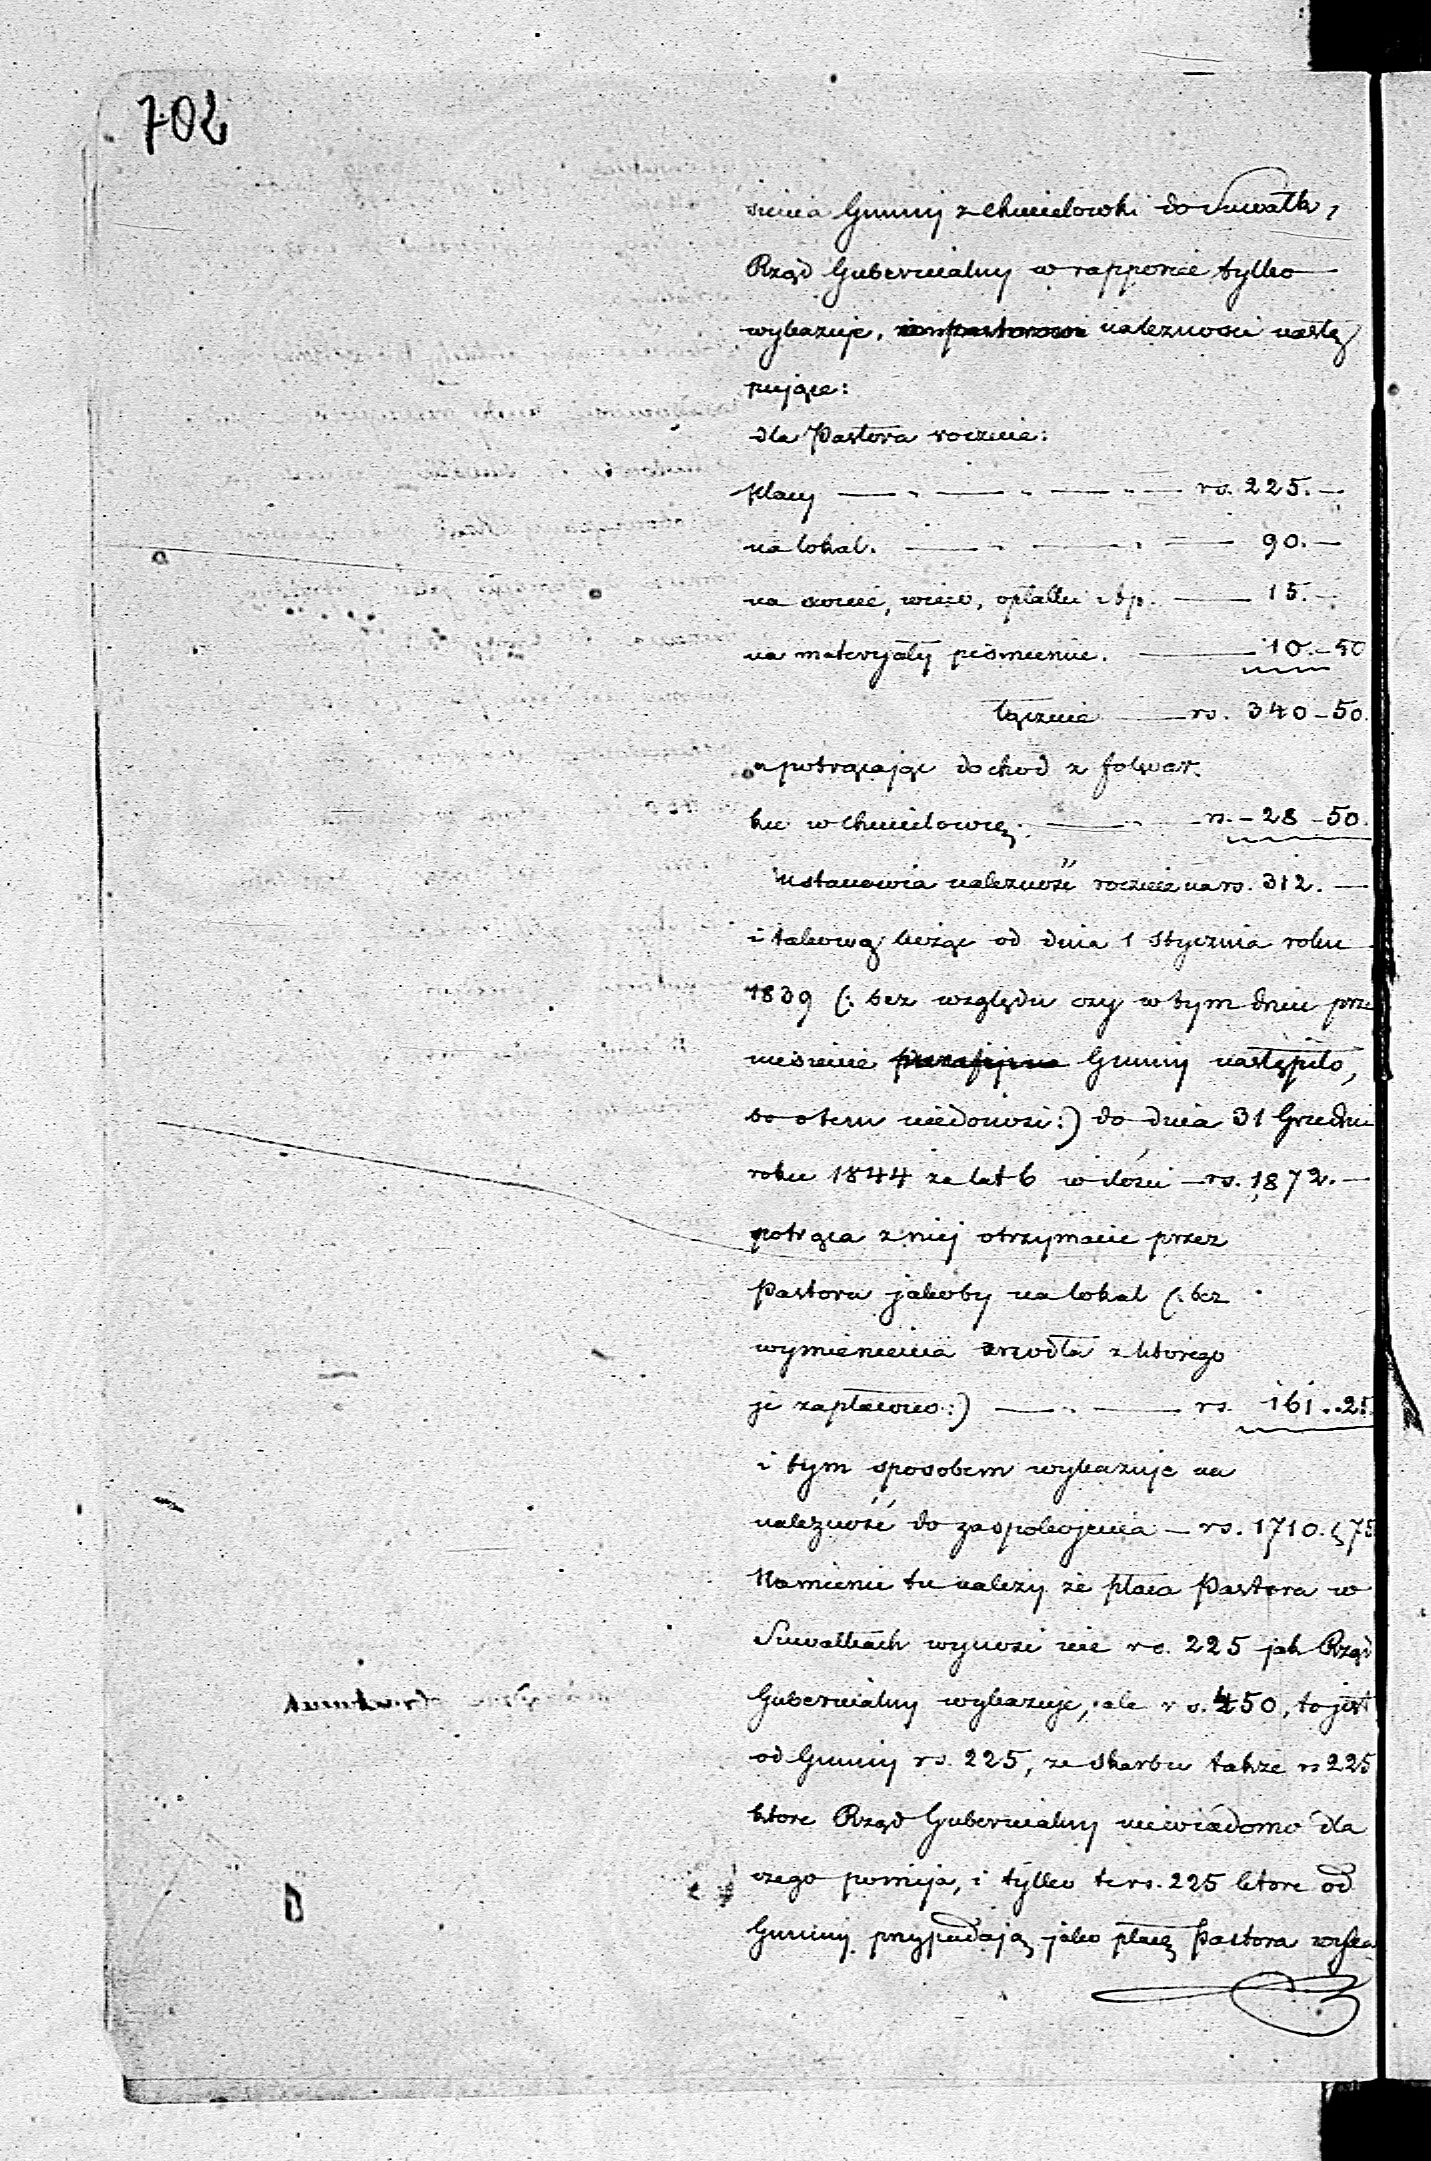 702
sienia Gminy z Chmielowki do Suwałk,
Rząd Gubernialny w rapporcie tylko
wykazuje, należności nastę
pujące:
dla Pastora rocznie:
płacy — " — " — " — rs. 225. —
na lokal. — " — " — 90. —
na świece, wino, opłatki itp. — 15. —
na materyały piśmienne. — 10. – 50
łącznie — rs. 340 – 50.
a potrącając dochod z folwar.
ku w Chmielowce. — " — rs. – 28 – 50.
ustanawia należność rocznie na rs. 312. —
i takową licząc od dnia 1 stycznia roku
1839 (: bez względu czy w tym dniu prze
niesienie Gminy nastąpiło,
bo o tem niedonosi :) do dnia 31 Grudni
roku 1844 za lat 6 w ilości — rs. 1,872. —
potrąca z niej otrzymane przez
Pastora jakoby na lokal (: bez
wymienienia źrzodła z którego
je zapłacono :) — " — rs. 161 .. 25
i tym sposobem wykazuje na
należność do zaspokojenia — rs. 1710. 75
Namienić tu należy że płaca Pastora w
Suwałkach wynosi nie rs. 225 jak Rząd
Gubernialny wykazuje, ale rs. 450, to jest
od Gminy rs. 225, ze skarbu także rs 225
ktore Rząd Gubernialny niewiadomo dla
czego pomija, i tylko te rs. 225 ktore od
Gminy przypadają jako płacę Pastora wyka